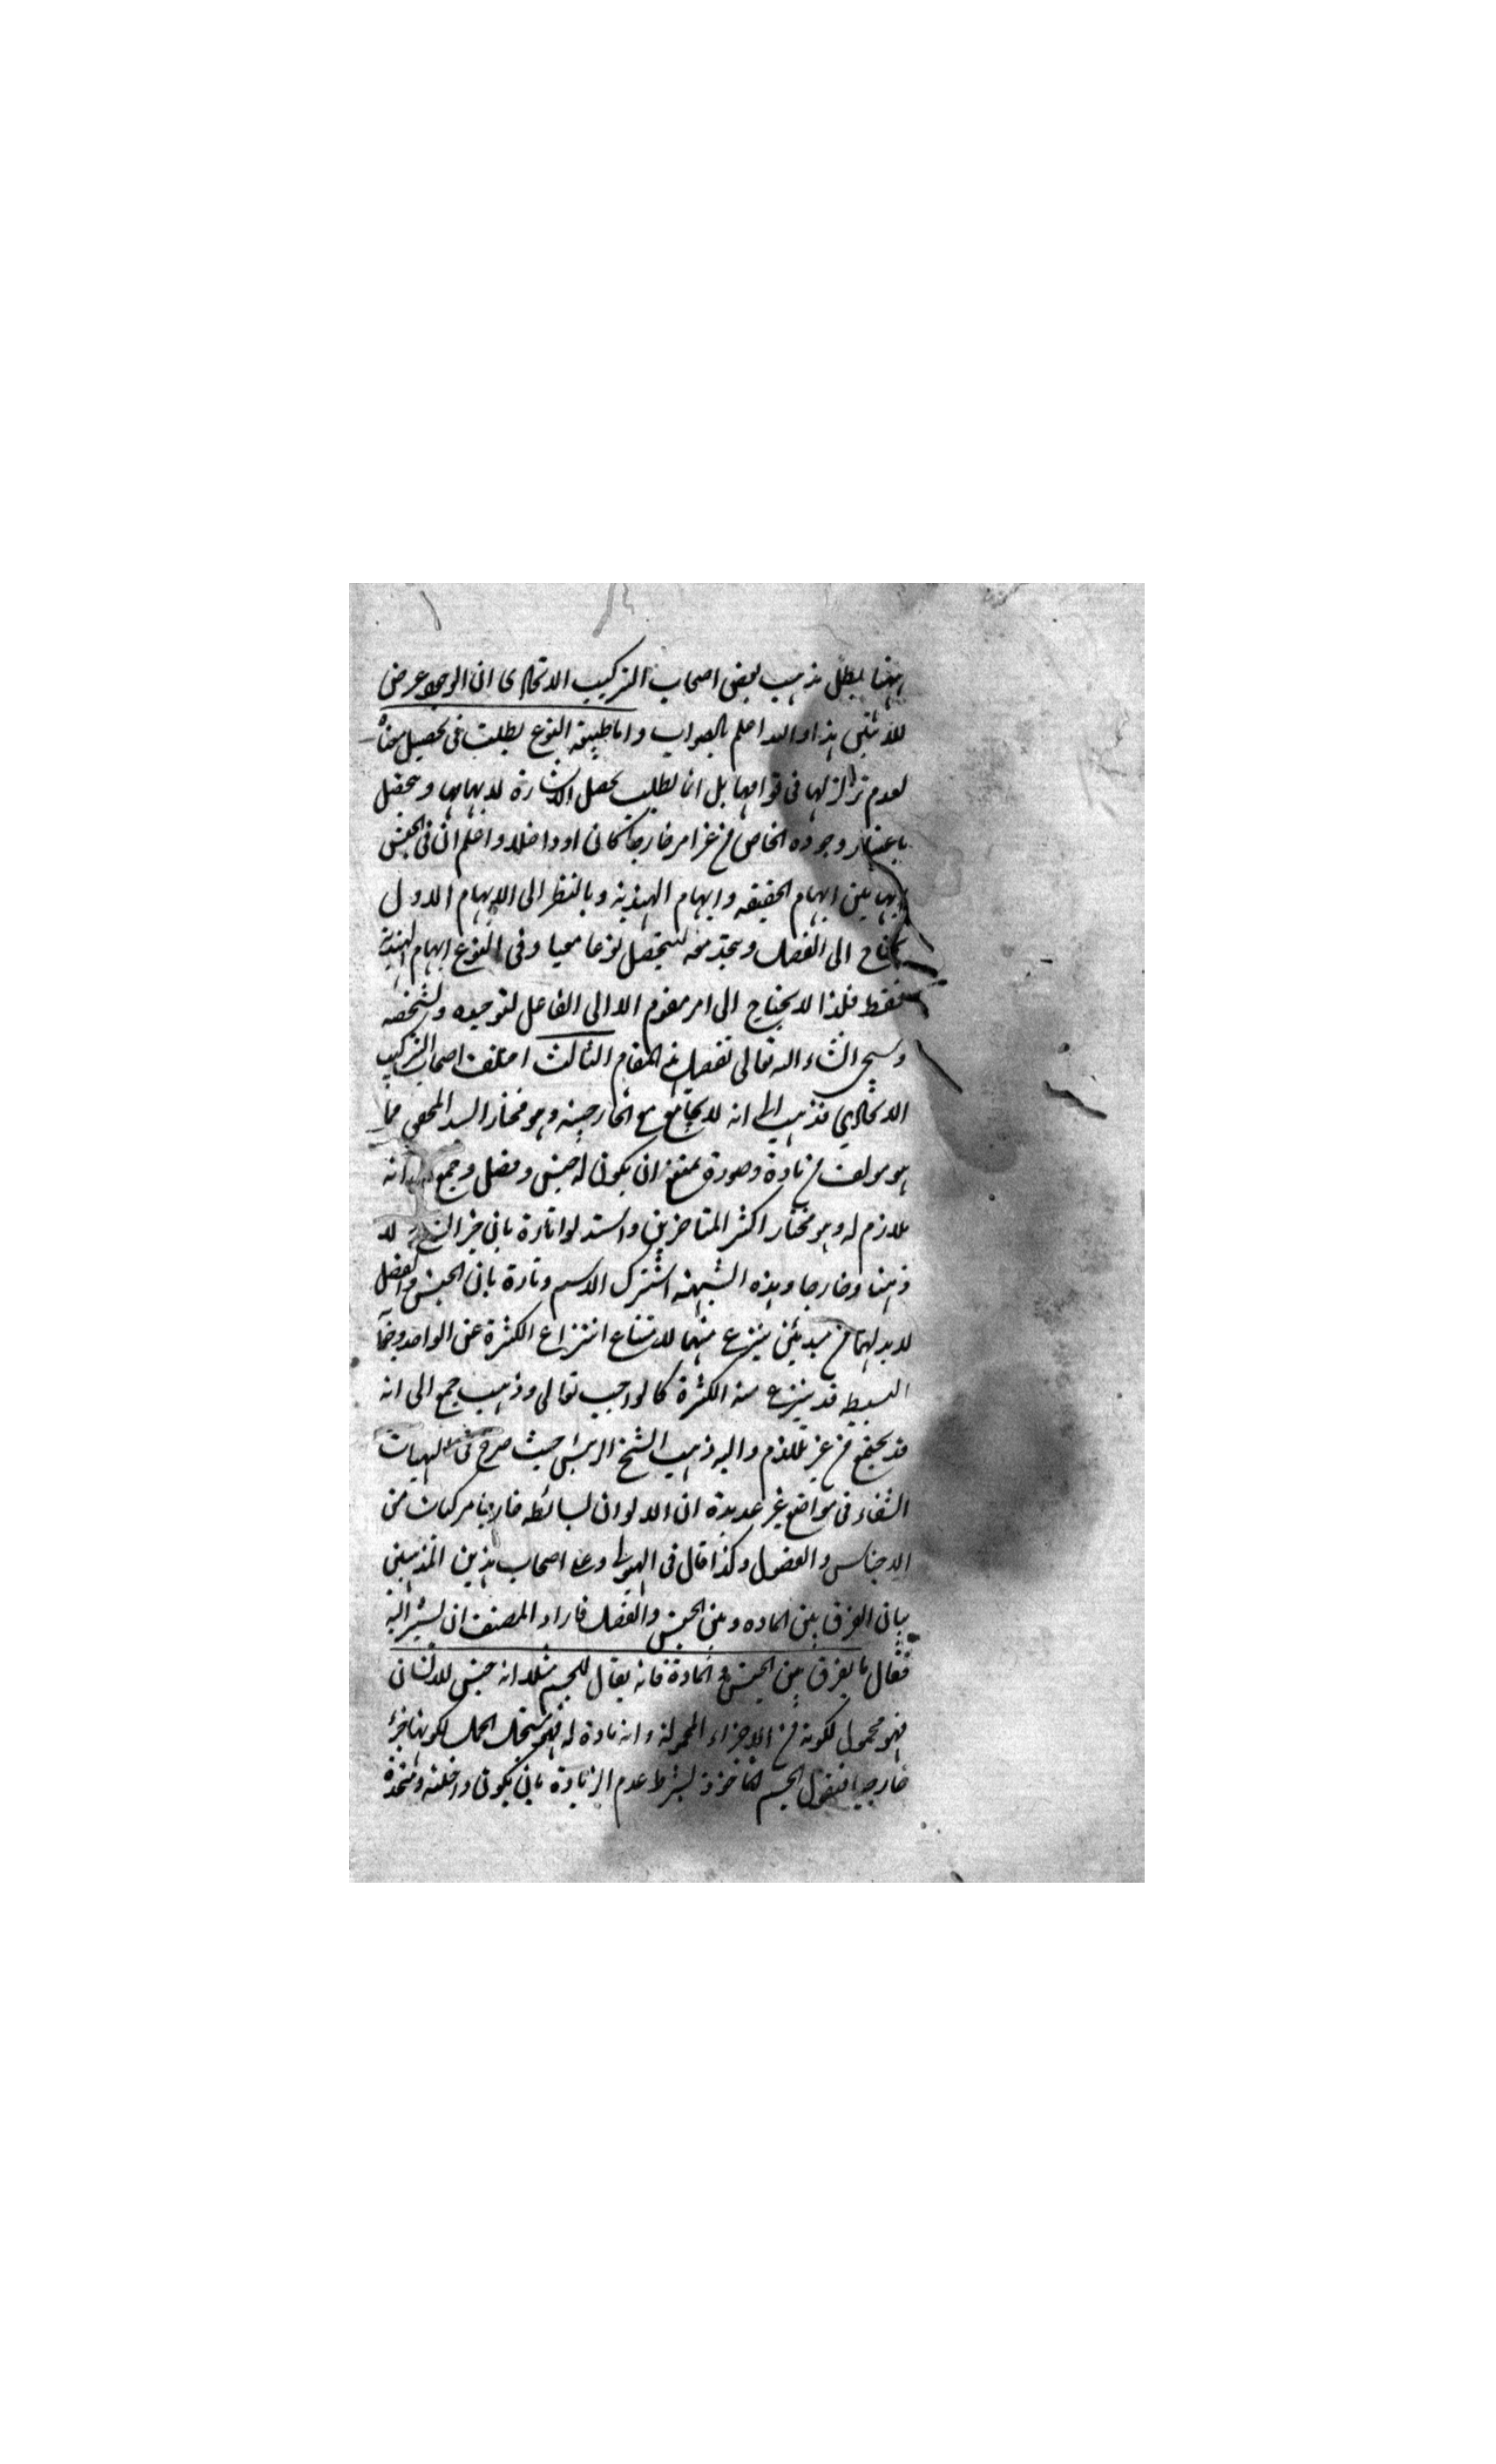 ههنا يبطل مذهب بعض اصحاب التركيب الاتحادى ان الوجود عرض
للاثنين هذا والله اعلم بالصواب واما طبيعة النوع يطلب فى تحصيل معناه
لعدم تزلزلها فى قوامها بل انما يطلب تحصل الاشارة لابهامها وتحصل
باعتبار وجوده الخاص من غير امر خارجا كان او داخلا واعلم ان فى الجنس
ابهامين ابهام الحقيقه وابهام الهذية وبالنظر الى الابهام الاول
يحتاج الى الفصل ويتحد معه ليتحصل نوعا وفى النوع ابهام الهذية
فقط فلذا لا يحتاج الى امر مقوم الا الى الفاعل لتوحيده وتشخصه
وسيجئ انشاء الله تعالى تفصيل هذا المقام الثالث اختلف اصحاب التركيب
الاتحادي فذهب الى انه لا يجامع مع الخارجية وهو مختار السيد المحقق فما
هو مولف من مادة وصورة يمتنع ان يكون له جنس وفصل وجمع انه
ملازم له وهو مختار اكثر المتاخرين واستدلوا تارة بان جزء الشئ لا
ذهنا وخارجا وهذه الشبهة اشترك الاسم وتارة بان الجنس والفصل
لا بد لهما من مبدئين ينتزع منهما لامتناع انتزاع الكثرة عن الواحد
البسيط قد ينتزع منه الكثرة كالواجب تعالى وذهب جمع الى انه
قد يجتمع من غير تلازم واليه ذهب الشيخ الرئيس حيث صرح فى الهيات
الشفاء فى مواضع غير عديدة ان الالوان بسائط خارجا مركبات من
الاجناس والفصول وكذا قال فى الهيولى وعلى اصحاب هذين المذهبين
بيان الفرق بين الماده وبين الجنس والفصل فاراد المصنف ان يشير اليه
فقال ما يفرق بين الجنس والمادة فانه يقال للجسم مثلا انه جنس للانسان
فهو محمول لكونه من الاجزاء المحمولة وانه مادة له فهو مستحيل الحمل لكونها جزء
خارجيا فنقول الجسم الماخوذ بشرط عدم الزيادة بان يكون داخلة ومتحدة